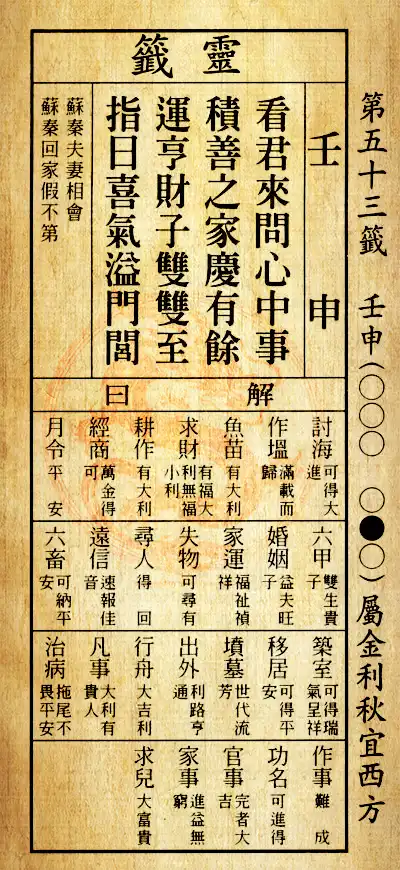 第五十三籤 壬申(○○○ ○●○)屬金利秋宜西方
靈籤
壬申
看君來問心中事
積善之家慶有餘
運亨財子雙雙至
指日喜氣溢門閭
蘇秦夫妻相會
蘇秦回家假不第
解曰
討海 可得大進
作塭 滿載而歸
魚苗 有大利
求財 有福大利無福小利
耕作 有大利
經商 萬金得可
月令 平安
六甲 雙生貴子
婚姻 益夫旺子
家運 福祉禎祥
失物 可尋有
尋人 得回
遠信 速報佳音
六畜 可納平安
築室 可得瑞氣呈祥
移居 可得平安
墳墓 世代流芳
出外 利路亨通
行舟 大吉利
凡事 大利有貴人
治病 拖尾不畏平安
作事 難成
功名 可進得
官事 完者大吉
家事 進益無窮
求兒 大富貴